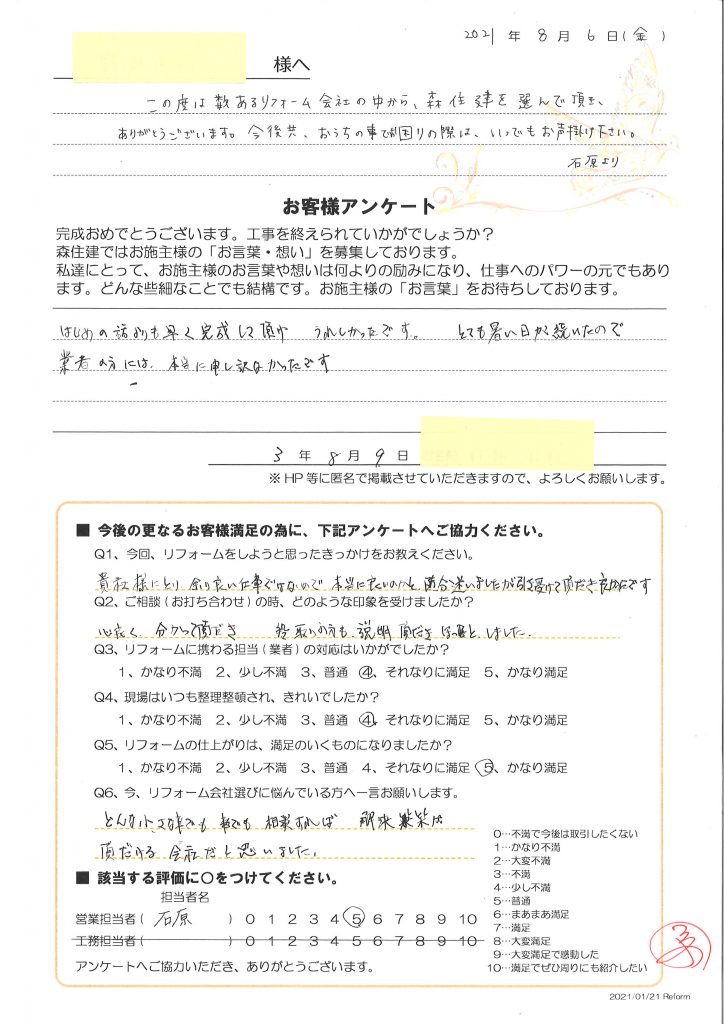 2021 年 8 月 6 日(金)
様へ
この度は数あるリフォーム会社の中から、森住建を選んで頂き、
ありがとうございます。今後共、おうちの事で困りの際は、いつでもお声掛け下さい。
石原より
お客様アンケート
完成おめでとうございます。工事を終えられていかがでしょうか?
森住建ではお施主様の「お言葉・想い」を募集しております。
私達にとって、お施主様のお言葉や想いは何よりの励みになり、仕事へのパワーの元でもあり
ます。どんな些細なことでも結構です。お施主様の「お言葉」をお待ちしております。
はじめの話よりも早く完成して頂き うれしかったです。 とても暑い日が続いたので
業者の方には、本当に申し訳なかったです
3 年 8 月 9 日
※HP等に匿名で掲載させていただきますので、よろしくお願いします。
■ 今後の更なるお客様満足の為に、下記アンケートへご協力ください。
Q1、今回、リフォームをしようと思ったきっかけをお教えください。
貴社様にとり 余り良い仕事ではないので 本当に良いのかと 迷いましたが引き受けて頂だき良かったです
Q2、ご相談(お打ち合わせ)の時、どのような印象を受けましたか?
心良く 分かって頂だき 段取りの方も、説明頂だき ほっとしました。
Q3、リフォームに携わる担当(業者)の対応はいかがでしたか?
1、かなり不満 2、少し不満 3、普通 4、それなりに満足 5、かなり満足
Q4、現場はいつも整理整頓され、きれいでしたか?
1、かなり不満 2、少し不満 3、普通 4、それなりに満足 5、かなり満足
Q5、リフォームの仕上がりは、満足のいくものになりましたか?
1、かなり不満 2、少し不満 3、普通 4、それなりに満足 5、かなり満足
Q6、今、リフォーム会社選びに悩んでいる方へ一言お願いします。
どんな小さな事でも 相談すれば 解決策は
頂だける 会社だと思いました。
0…不満で今後は取引したくない
1…かなり不満
2…大変不満
3…不満
4…少し不満
5…普通
6…まあまあ満足
7…満足
8…大変満足
9…大変満足で感動した
10…満足でぜひ周りにも紹介したい
■ 該当する評価に○をつけてください。
担当者名
営業担当者( 石原 ) 0 1 2 3 4 5 6 7 8 9 10
工務担当者( ) 0 1 2 3 4 5 6 7 8 9 10
アンケートへご協力いただき、ありがとうございます。
2021/01/21 Reform